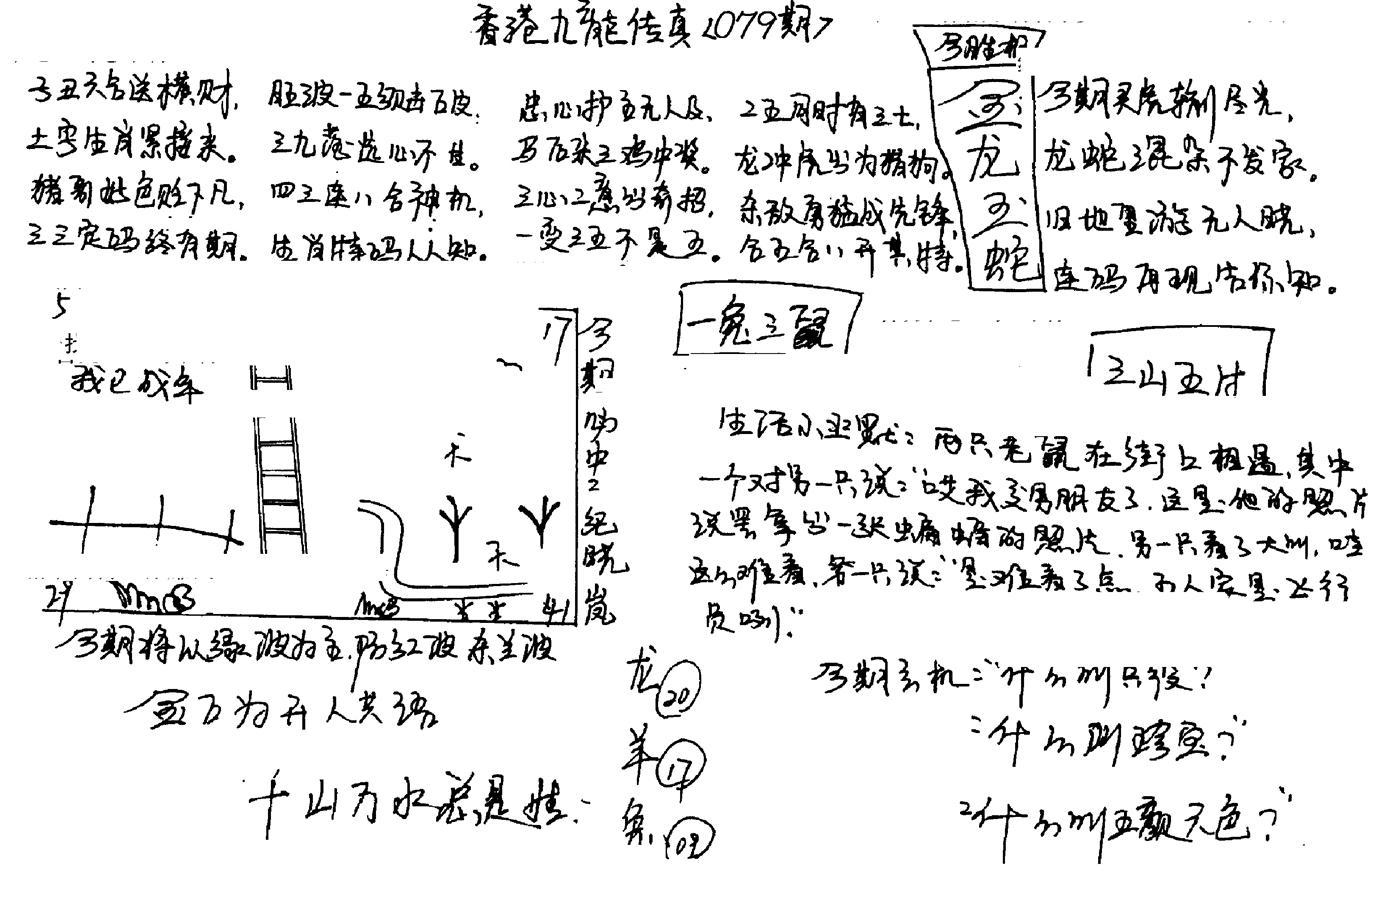 香港九龙传真<079期>
今胜机
今丑六合送横财,
土字生肖紧接来。
猪哥好色贬下凡,
三三定码终有期。
旺波一五须去石皮,
三九落选心不甘。
四三连八合神机,
生肖特码人人知。
忠心护主无人及,
马后来三鸡中奖。
三心二意出奇招,
一变三五不是五。
二五同时有三士,
龙冲虎出为猪狗。
杀敌勇猛成先锋,
合五合八开其特。
玉
龙
玉
蛇
今期买虎输尽光,
龙蛇混杂不发家。
旧地重游无人晓,
连码再现告你知。
5
17
我已成年
天
天
29
41
今期鸣中:纪晓岚
一兔三鼠
三山五片
生活小幽默:两只老鼠在街上相遇,其中
一个对另一只说:"哎我交男朋友了,这是他的照片
说罢拿出一张蝙蝠的照片,另一只看了大叫,哇
这么难看,第一只说:"是难看了点 可人家是飞行
员咧!"
今期将以绿波为主,防红波杀兰波
千山万水总是情:
龙 20
羊 17
兔
今期玄机:"什么叫只役?
:什么叫珍宝?"
:什么叫五颜六色?"